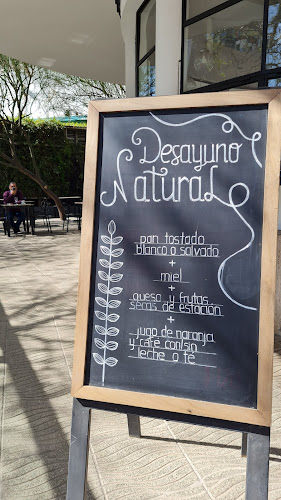 Desayuno
Natural
pan tostado
blanco o salvado
+
miel
+
queso y frutas
secas de estación
+
jugo de naranja
y café con/sin
leche o té